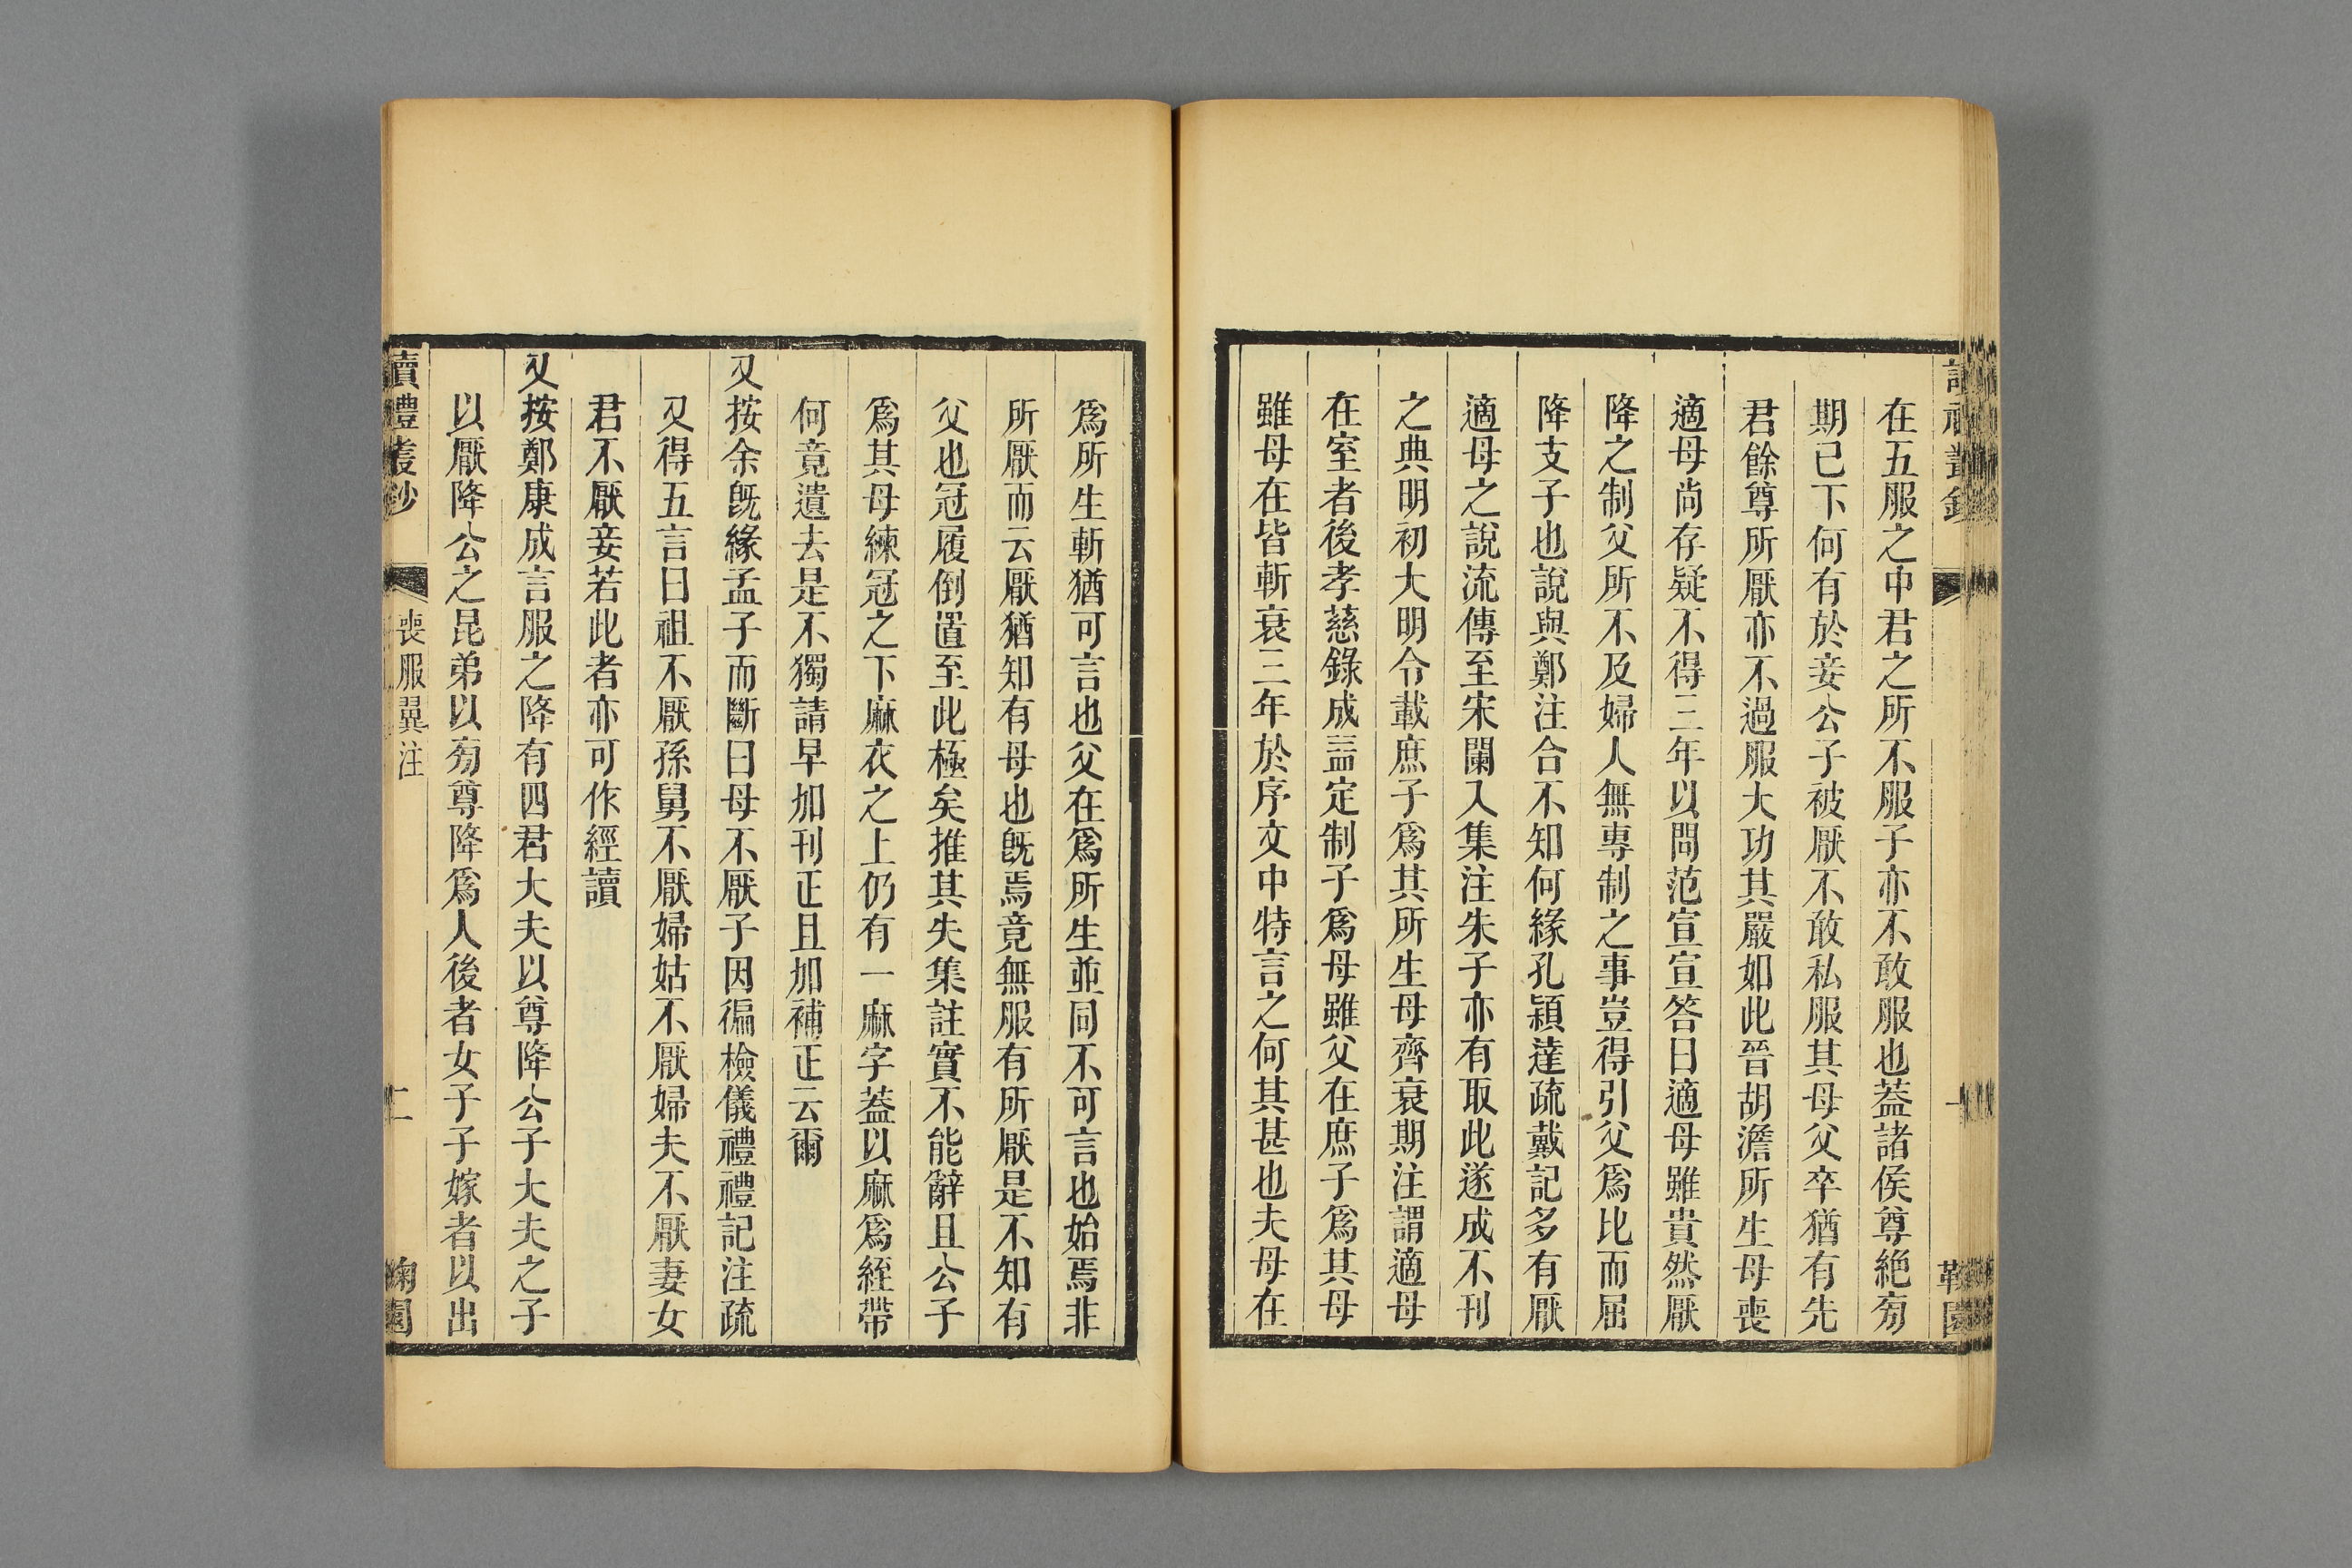 在五服之中君之所不服子亦不敢服也葢諸侯尊絶㫄
期已下何有於妾公子被厭不敢私服其母父卒猶有先
君餘尊所厭亦不過服大功其嚴如此晉胡澹所生母喪
適母尚存疑不得三年以問范宣宣答曰適母雖貴然厭
降之制父所不及婦人無專制之事豈得引父爲比而屈
降支子也說與鄭注合不知何緣孔穎達疏戴記多有厭
適母之說流傳至宋闌入集注朱子亦有取此遂成不刊
之典明初大明令載庶子爲其所生母齊衰期注謂適母
在室者後孝慈錄成盖定制子爲母雖父在庶子爲其母
雖母在皆斬衰三年於序文中特言之何其甚也夫母在
爲所生斬猶可言也父在爲所生並同不可言也始焉非
所厭而云厭猶知有母也旣焉竟無服有所厭是不知有
父也冠履倒置至此極矣推其失集註實不能辭且公子
爲其母練冠之下麻衣之上仍有一麻字葢以麻爲絰帶
何竟遺去是不獨請早加刊正且加補正云爾
又按余旣緣孟子而斷曰母不厭子因徧檢儀禮禮記注疏
又得五言曰祖不厭孫舅不厭婦姑不厭婦夫不厭妻女
君不厭妾若此者亦可作經讀
又按鄭康成言服之降有四君大夫以尊降公子大夫之子
以厭降公之昆弟以㫄尊降爲人後者女子子嫁者以出
讀禮叢鈔 喪服翼注 二 鞠園